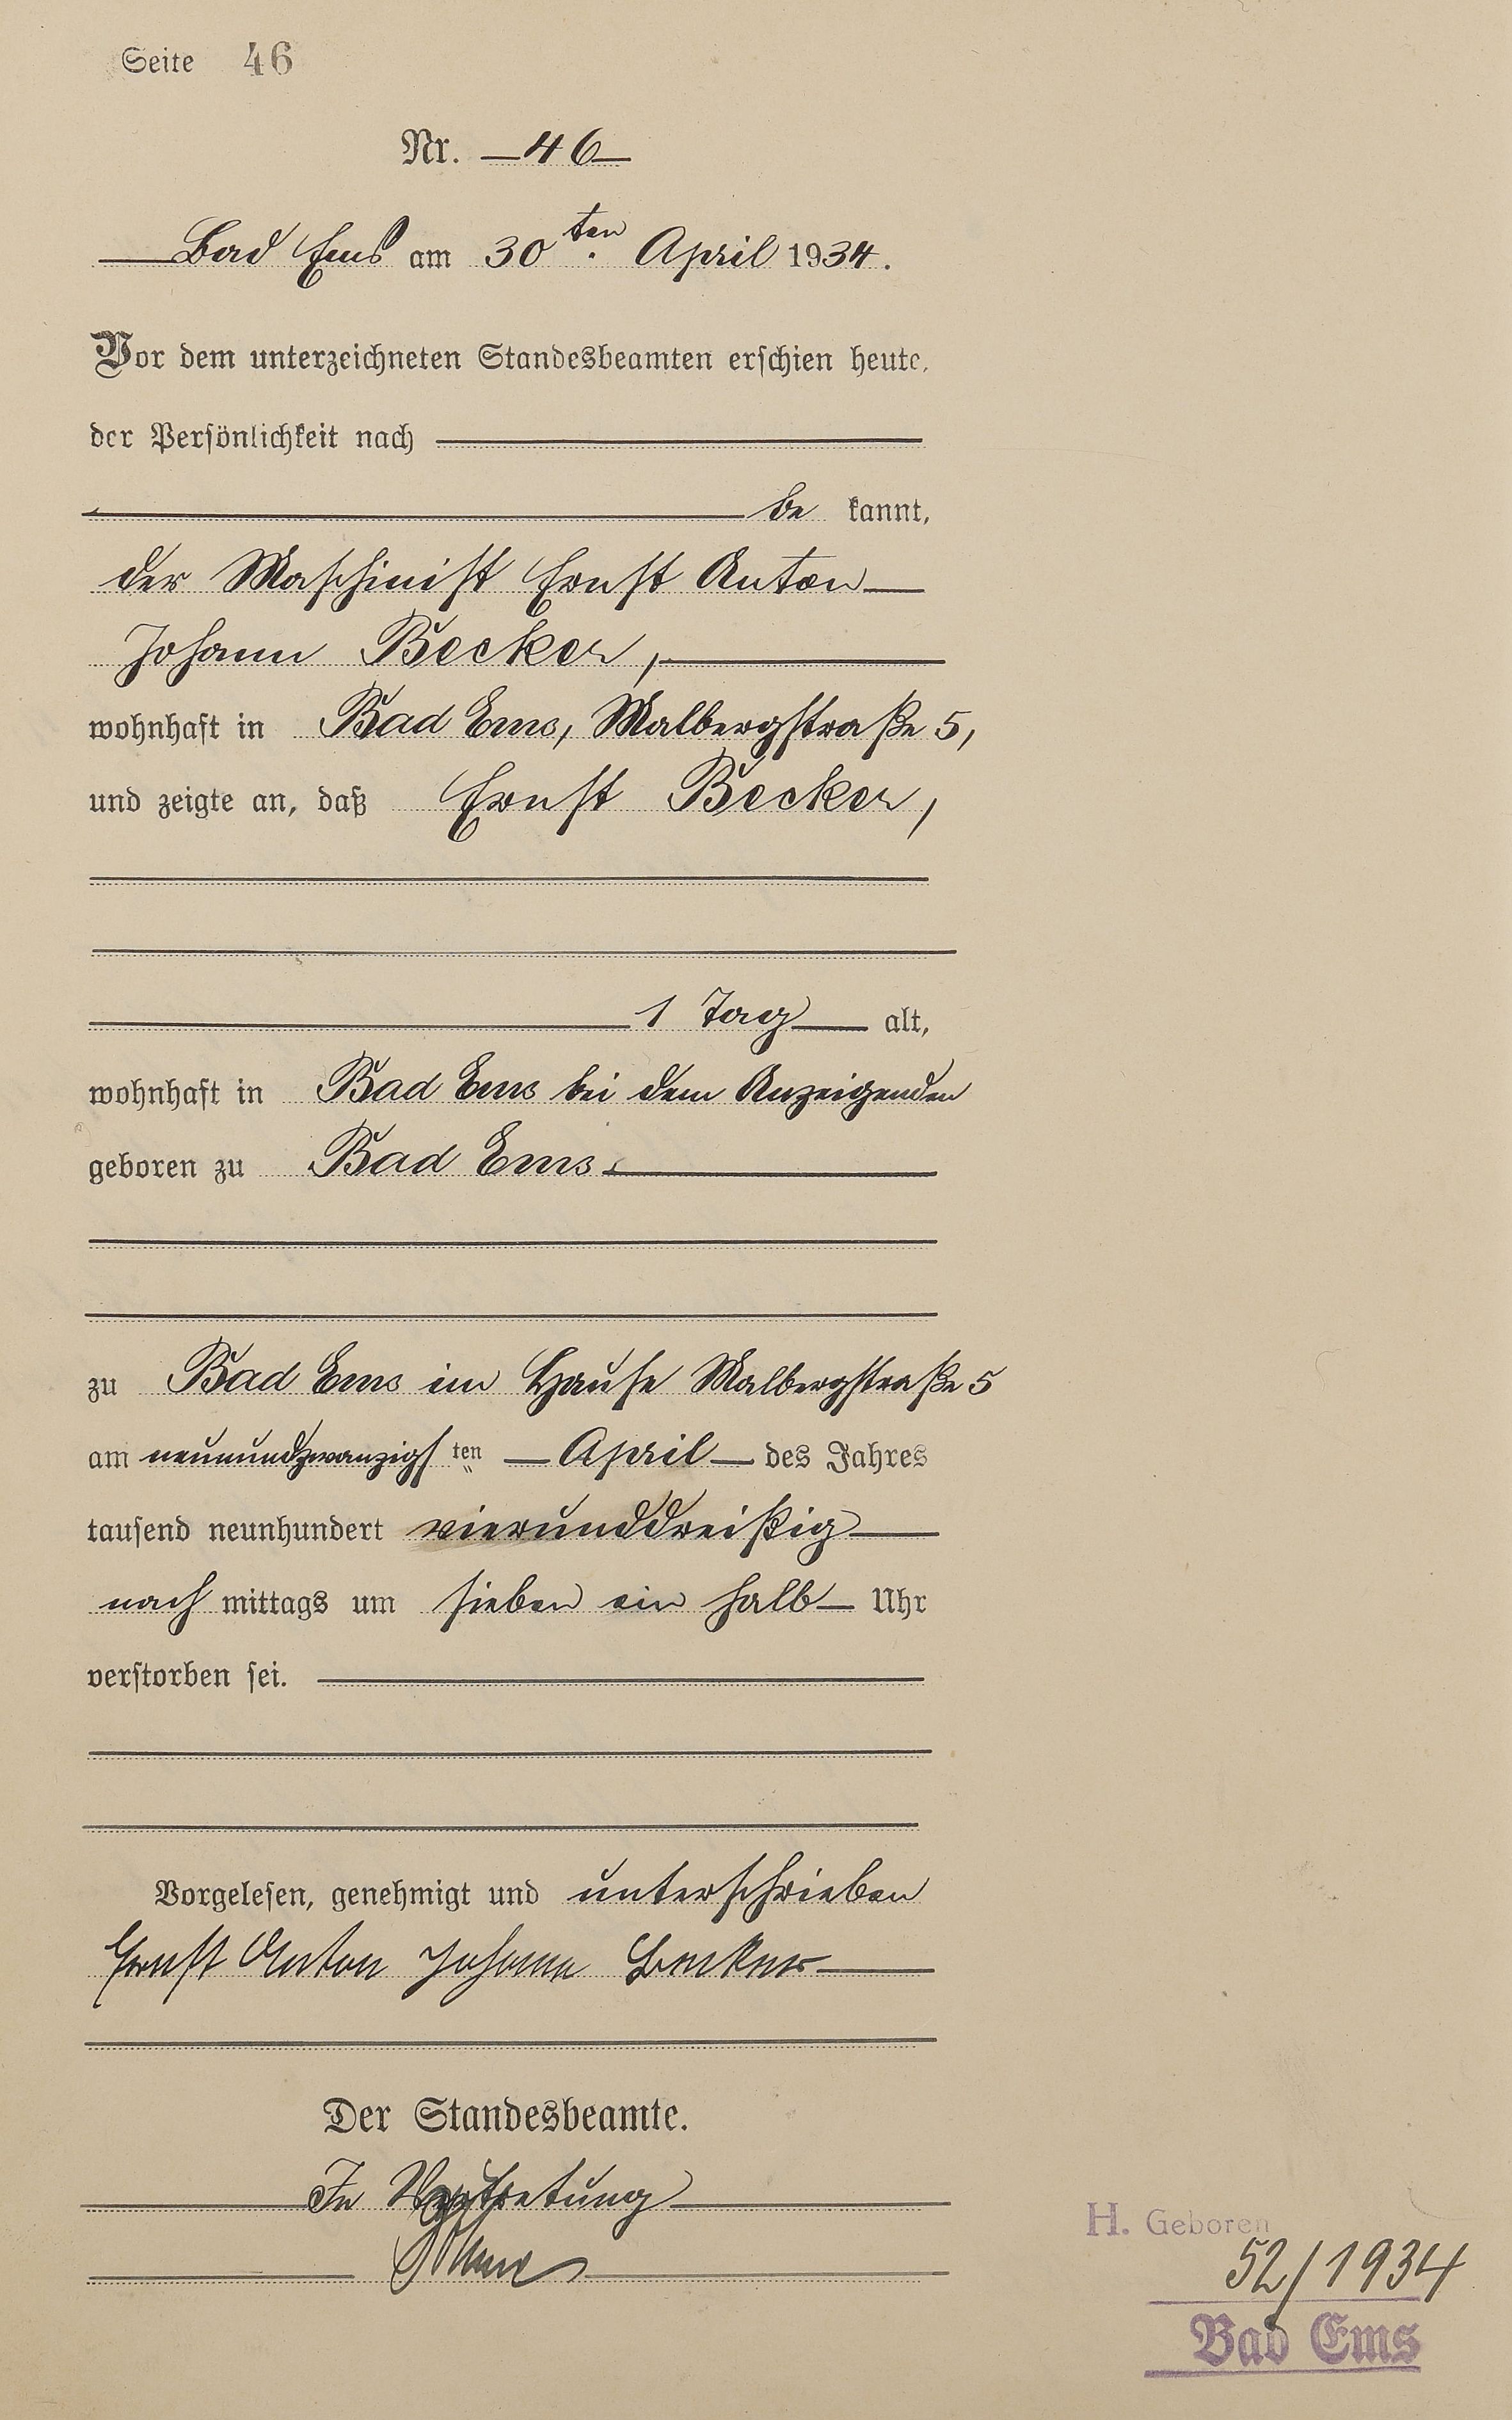 Seite 46
Nr. 46
Bad Ems am 30ten. April 1934.
Vor dem unterzeichneten Standesbeamten erschien heute,
der Persönlichkeit nach
be kannt,
der Maschinist Ernst Anton
Johann Becker,
wohnhaft in Bad Ems, Malbergstraße 5,
und zeigte an, daß Ernst Becker,
1 Tag alt,
wohnhaft in Bad Ems bei dem Anzeigenden
geboren zu Bad Ems.
zu Bad Ems im Hause Malbergstraße 5
am neunundzwanzigsten April des Jahres
tausend neunhundert vierunddreißig
nach mittags um sieben ein halb Uhr
verstorben sei.
Vorgelesen, genehmigt und unterschrieben
Ernst Anton Johann Becker
Der Standesbeamte.
In Vertretung
H. Geboren
52/1934
Bad Ems